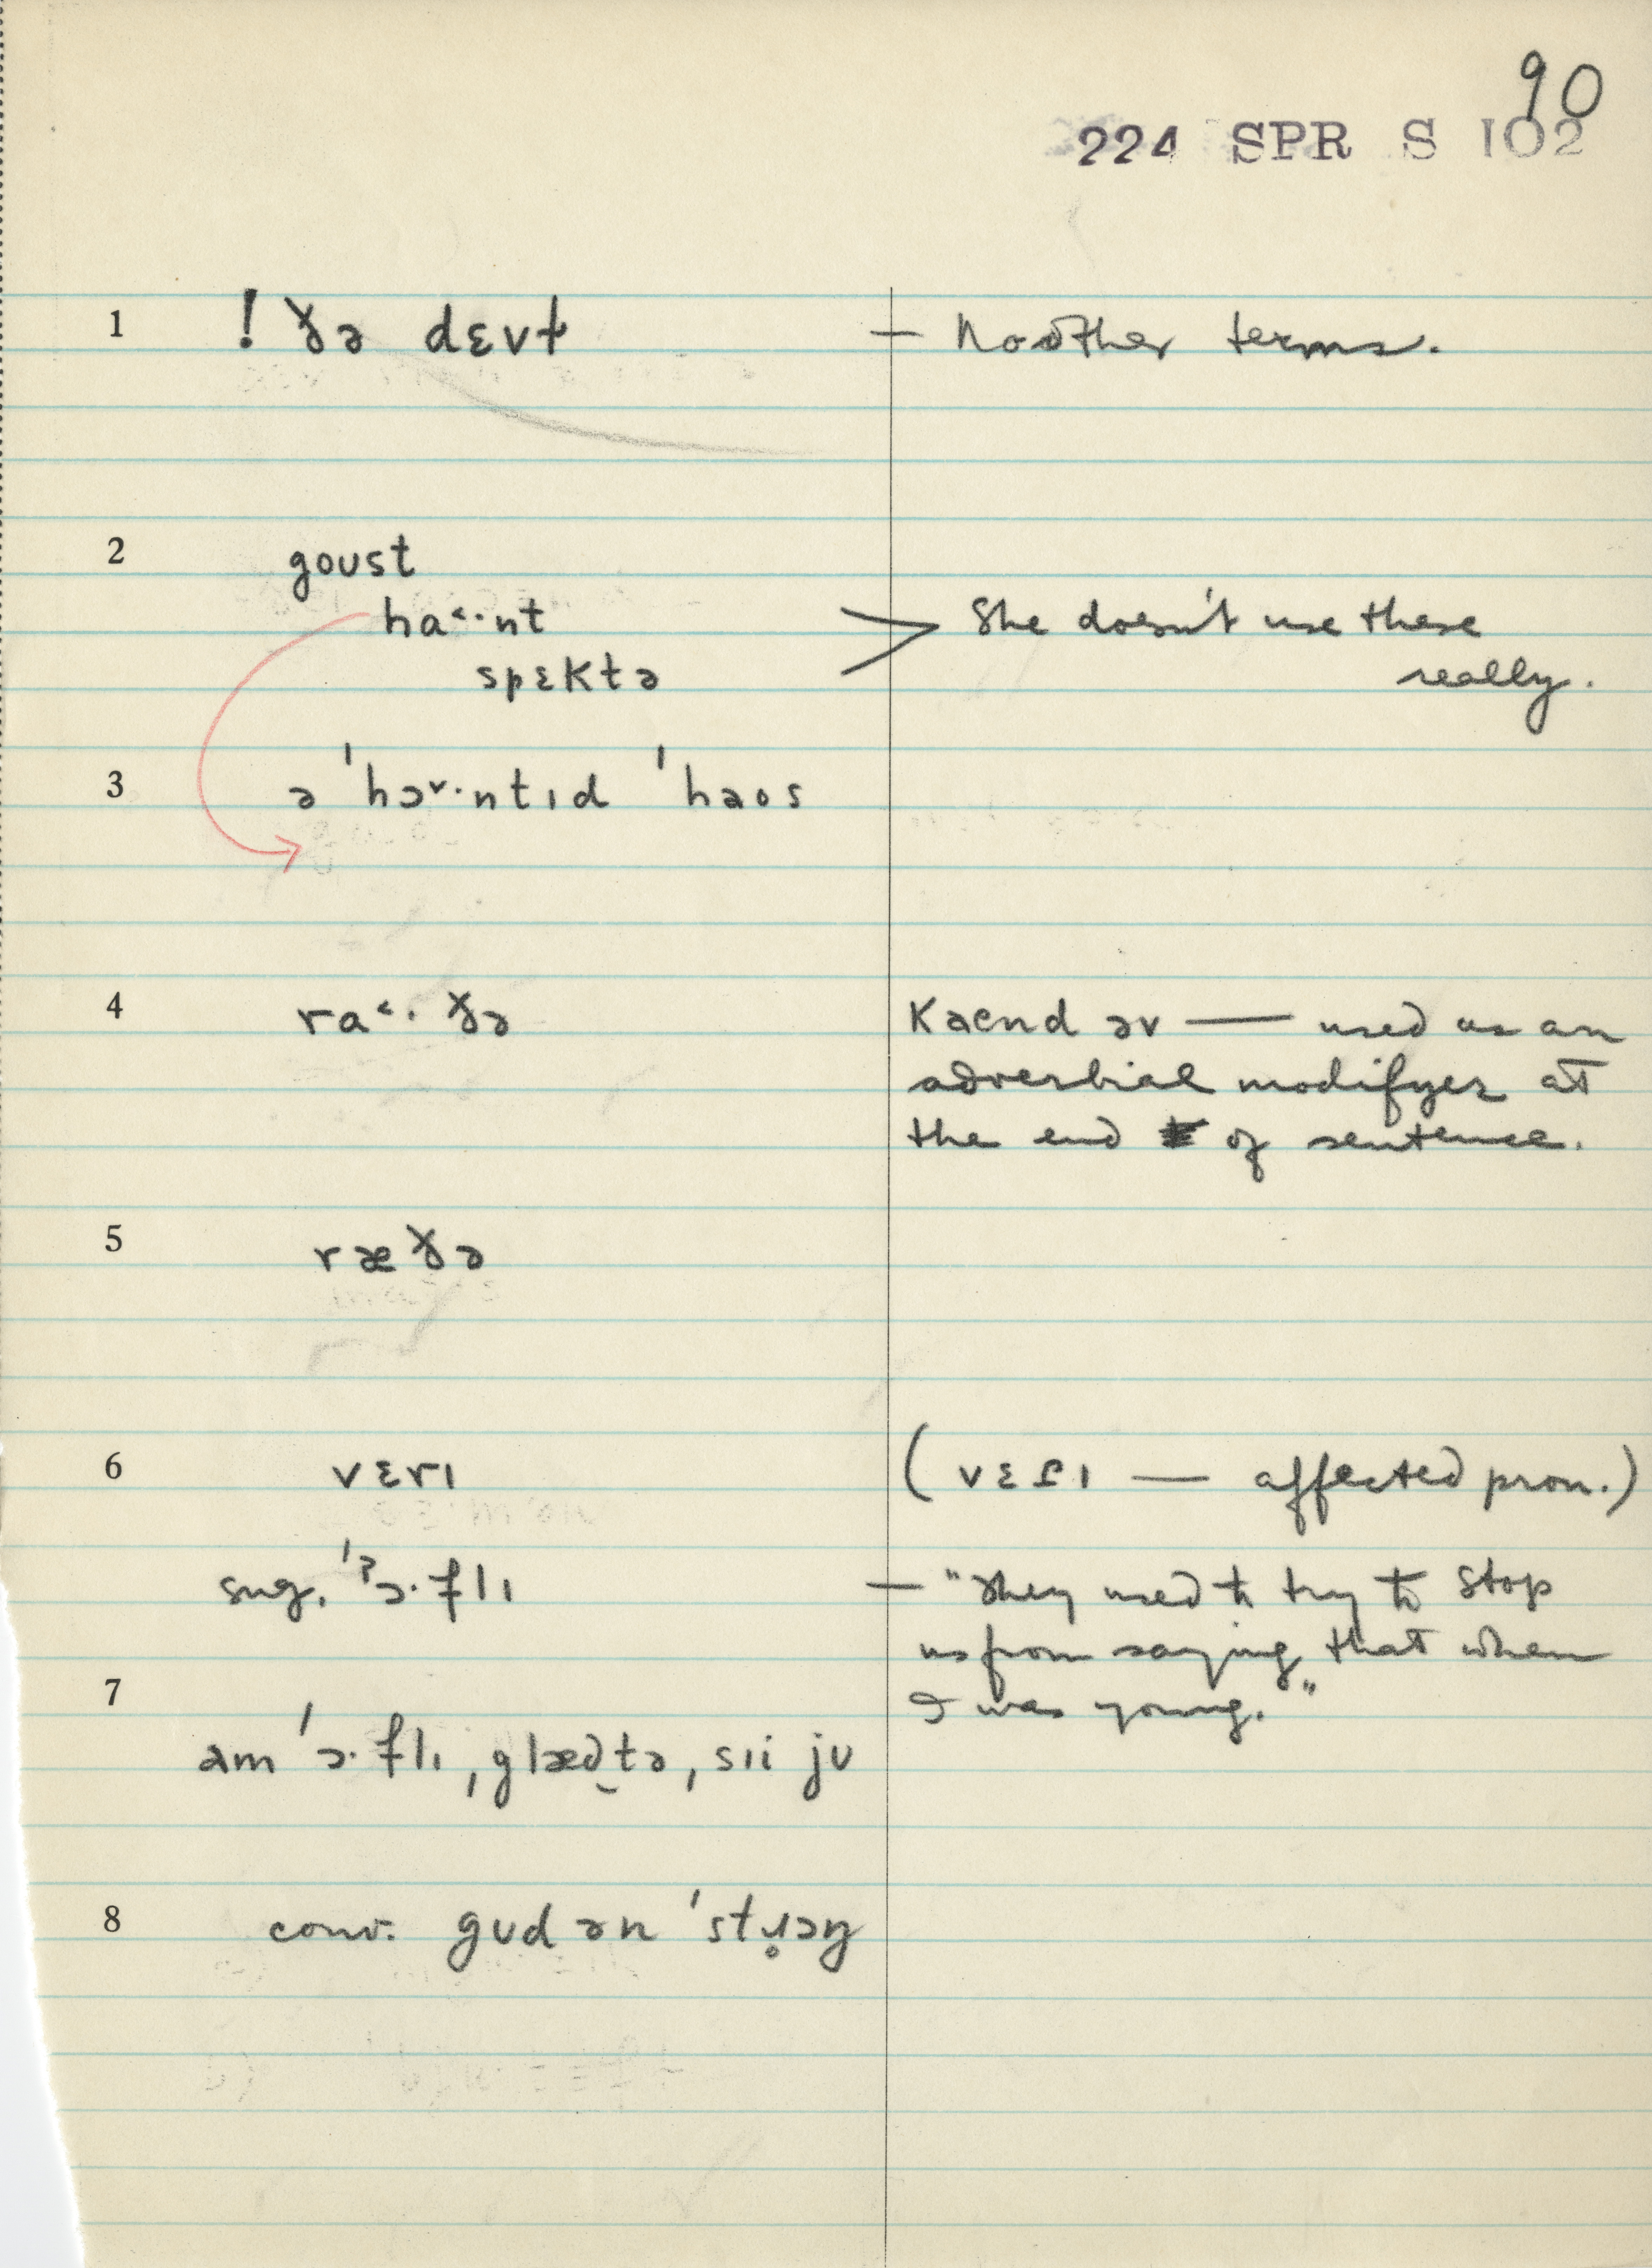 90
224 SPR S 102
1 ! ɣə dɛvɫ — No other terms.
2 goʊst
ha˂·nt > She doesn't use these
spɛktə really.
3 ə 'hɔ˅·ntɪd 'haos
4 ra˂· ɣə kaend əv — used as an
adverbial modifyer at
the end of sentence.
5 ræɣə
6 vɛrɪ (vɛɾɪ — affected pron.)
sug. 'ʔɔ·flɪ — "They used to try to stop
us from saying that when
7 I was young."
am 'ɔ·flɪ, glæd̪tə, sɪi jʊ
8 conv. gʊd ən 'stɹ̥ɔŋ